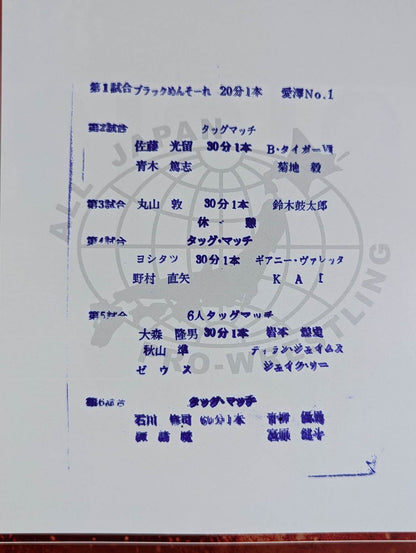 第1試合 ブラックめんそーれ 20分1本 愛澤No.1
第2試合 タッグマッチ
佐藤 光留 30分1本 B・タイガーⅦ
青木 篤志 菊地 毅
第3試合 丸山 敦 30分1本 鈴木鼓太郎
休 憩
第4試合 タッグ・マッチ
ヨシタツ 30分1本 ギアニー・ヴァレッタ
野村 直矢 K A I
第5試合 6人タッグマッチ
大森 隆男 30分1本 岩本 煌史
秋山 準 ディラン・ジェイムス
ゼウス ジェイク・リー
第6試合 タッグ・マッチ
石川 修司 60分1本 青柳 優馬
諏訪魔 宮原 健斗
ALL JAPAN
PRO-WRESTLING